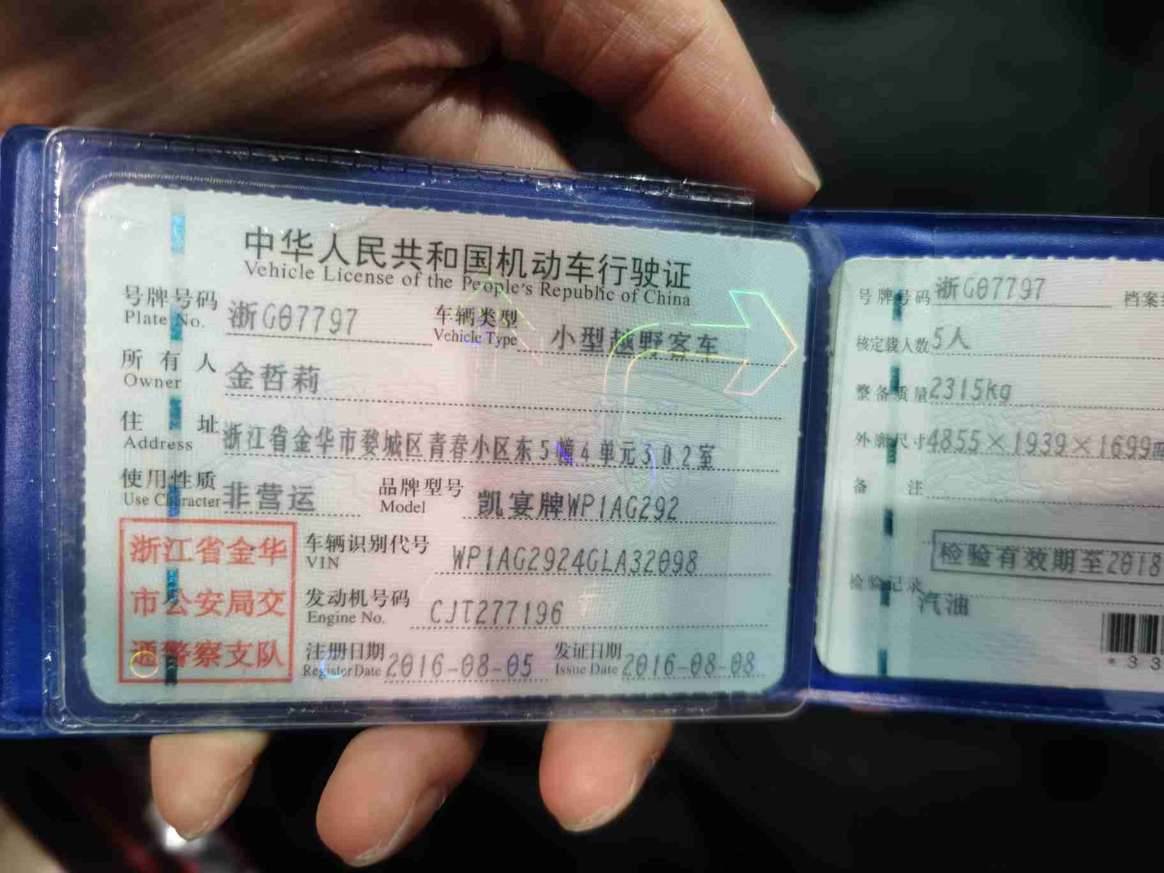 中华人民共和国机动车行驶证
Vehicle License of the People's Republic of China
号牌号码 浙G07797 车辆类型 小型越野客车
Plate No. Vehicle Type
所有人 金哲莉
Owner
住址 浙江省金华市婺城区青春小区东5幢4单元302室
Address
使用性质 非营运 品牌型号 凯宴牌WP1AG292
Use Character Model
浙江省金华
市公安局交
通警察支队
车辆识别代号 WP1AG2924GLA32098
VIN
发动机号码 CJT277196
Engine No.
注册日期 2016-08-05 发证日期 2016-08-08
Register Date Issue Date
号牌号码 浙G07797 档案
核定载人数 5人
整备质量 2315kg
外廓尺寸 4855×1939×1699
备注
检验有效期至2018
检验记录
汽油
*33